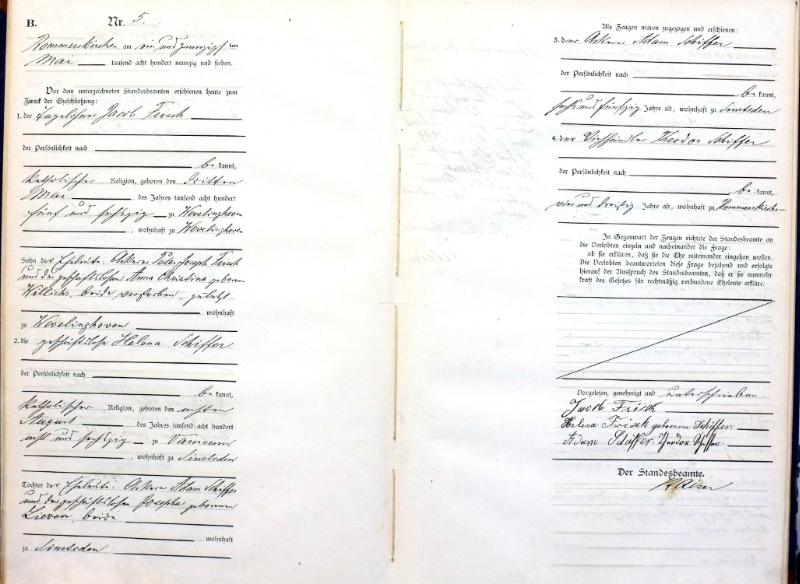 B. Nr. 5.
Rommerskirchen am ein und zwanzigsten
Mai tausend acht hundert neunzig und sieben.
Vor dem unterzeichneten Standesbeamten erschienen heute zum
Zweck der Eheschließung:
1. der Tagelöhner Jacob Frisch
der Persönlichkeit nach
be kannt,
katholischer Religion, geboren den dritten
Mai des Jahres tausend acht hundert
fünf und sechszig zu Wevelinghoven
, wohnhaft zu Wevelinghoven
Sohn der Eheleute: Ackerer Peter Joseph Frisch
und der geschäftslosen Anna Christina geborenen
beide verstorben, zuletzt
wohnhaft
zu Wevelinghoven
2. die geschäftslose Helena Schiffer
der Persönlichkeit nach
be kannt,
katholischer Religion, geboren den ersten
August des Jahres tausend acht hundert
acht und sechszig zu Vanikum
, wohnhaft zu Sinsteden
Tochter der Eheleute: Ackerer Adam Schiffer
und der geschäftslosen Josepha geborenen
Lieven, beide
wohnhaft
zu Sinsteden
Als Zeugen waren zugezogen und erschienen:
3. der Ackerer Adam Schiffer
der Persönlichkeit nach
be kannt,
sechs und fünfzig Jahre alt, wohnhaft zu Sinsteden
4. der Viehhändler Theodor Schiffer
der Persönlichkeit nach
be kannt,
vier und dreißig Jahre alt, wohnhaft zu Rommerskirchen
In Gegenwart der Zeugen richtete der Standesbeamte an
die Verlobten einzeln und nacheinander die Frage:
ob sie erklären, daß sie die Ehe miteinander eingehen wollen.
Die Verlobten beantworteten diese Frage bejahend und erfolgte
hierauf der Ausspruch des Standesbeamten, daß er sie nunmehr
kraft des Gesetzes für rechtmäßig verbundene Eheleute erkläre.
Vorgelesen, genehmigt und unterschrieben
Jacob Frisch
Helena Frisch geborene Schiffer
Adam Schiffer. Theodor Schiffer.
Der Standesbeamte.